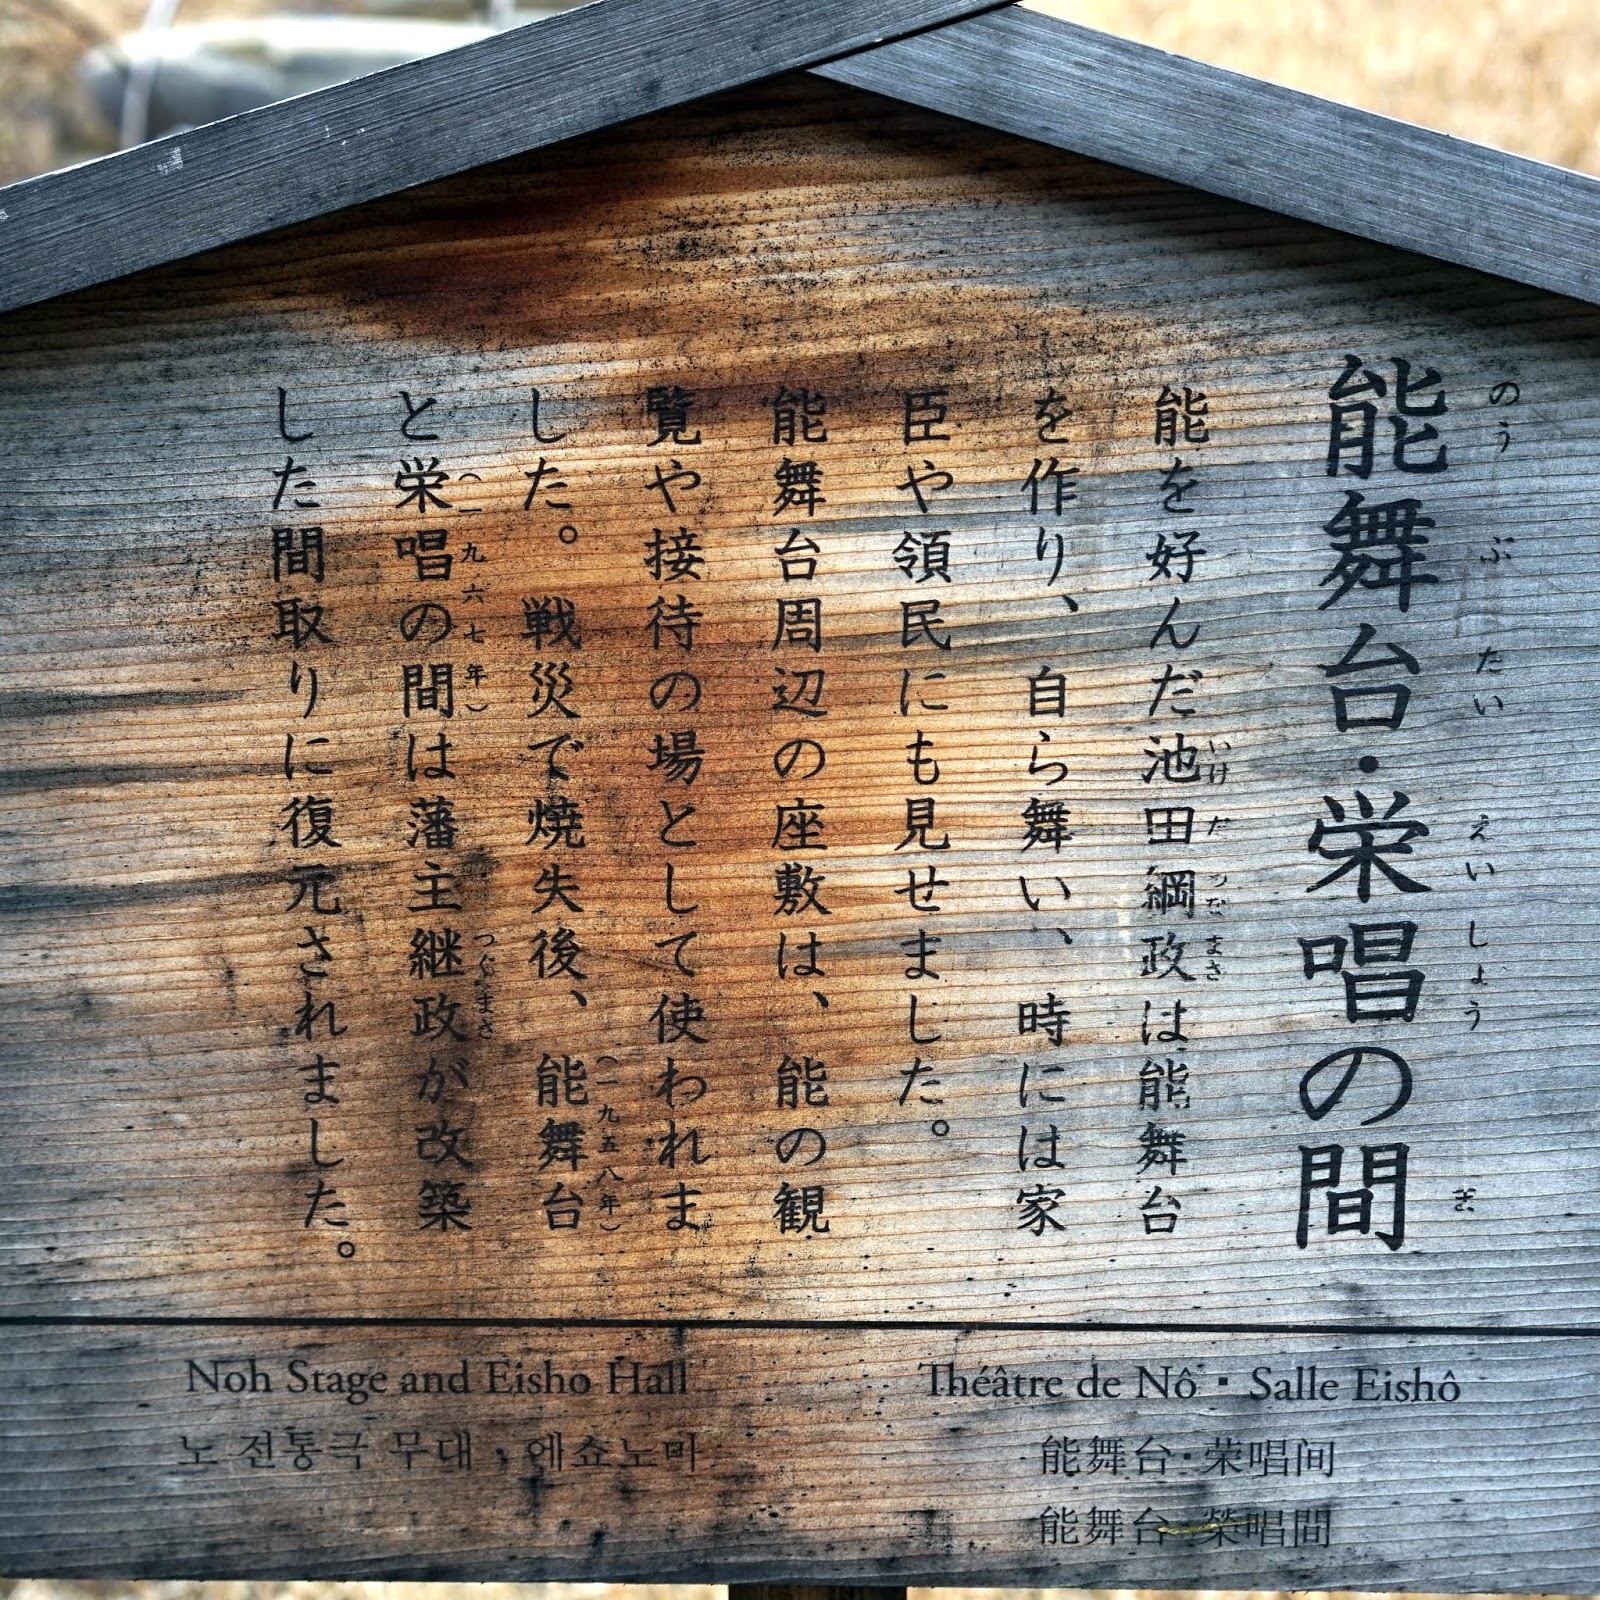 能舞台・栄唱の間
のうぶたい えいしょう ま
能を好んだ池田綱政は能舞台
いけだつなまさ
を作り、自ら舞い、時には家
臣や領民にも見せました。
能舞台周辺の座敷は、能の観
覧や接待の場として使われま
した。戦災で焼失後、能舞台
（一九五八年）
と栄唱の間は藩主継政が改築
（一九六七年） つぐまさ
した間取りに復元されました。
Noh Stage and Eisho Hall
노 전통극 무대・에쇼노마
Théâtre de Nô・Salle Eishô
能舞台・荣唱间
能舞台・榮唱間